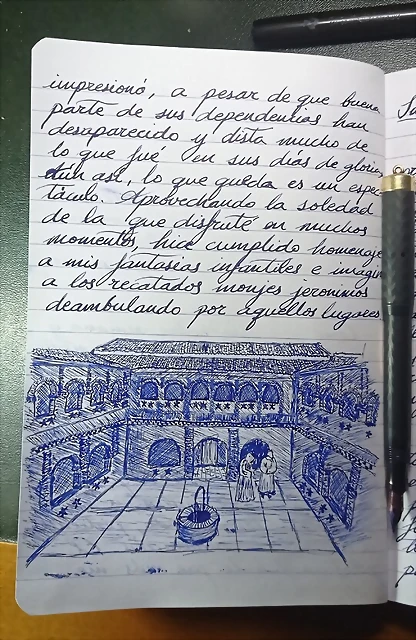 impresionó, a pesar de que buena
parte de sus dependencias han
desaparecido y dista mucho de
lo que fué en sus días de gloria
aun así, lo que queda es un espec
táculo. Aprovechando la soledad
de la que disfruté en muchos
momentos, hice cumplido homenaje
a mis fantasías infantiles e imaginé
a los recatados monjes jeronimos
deambulando por aquellos lugares